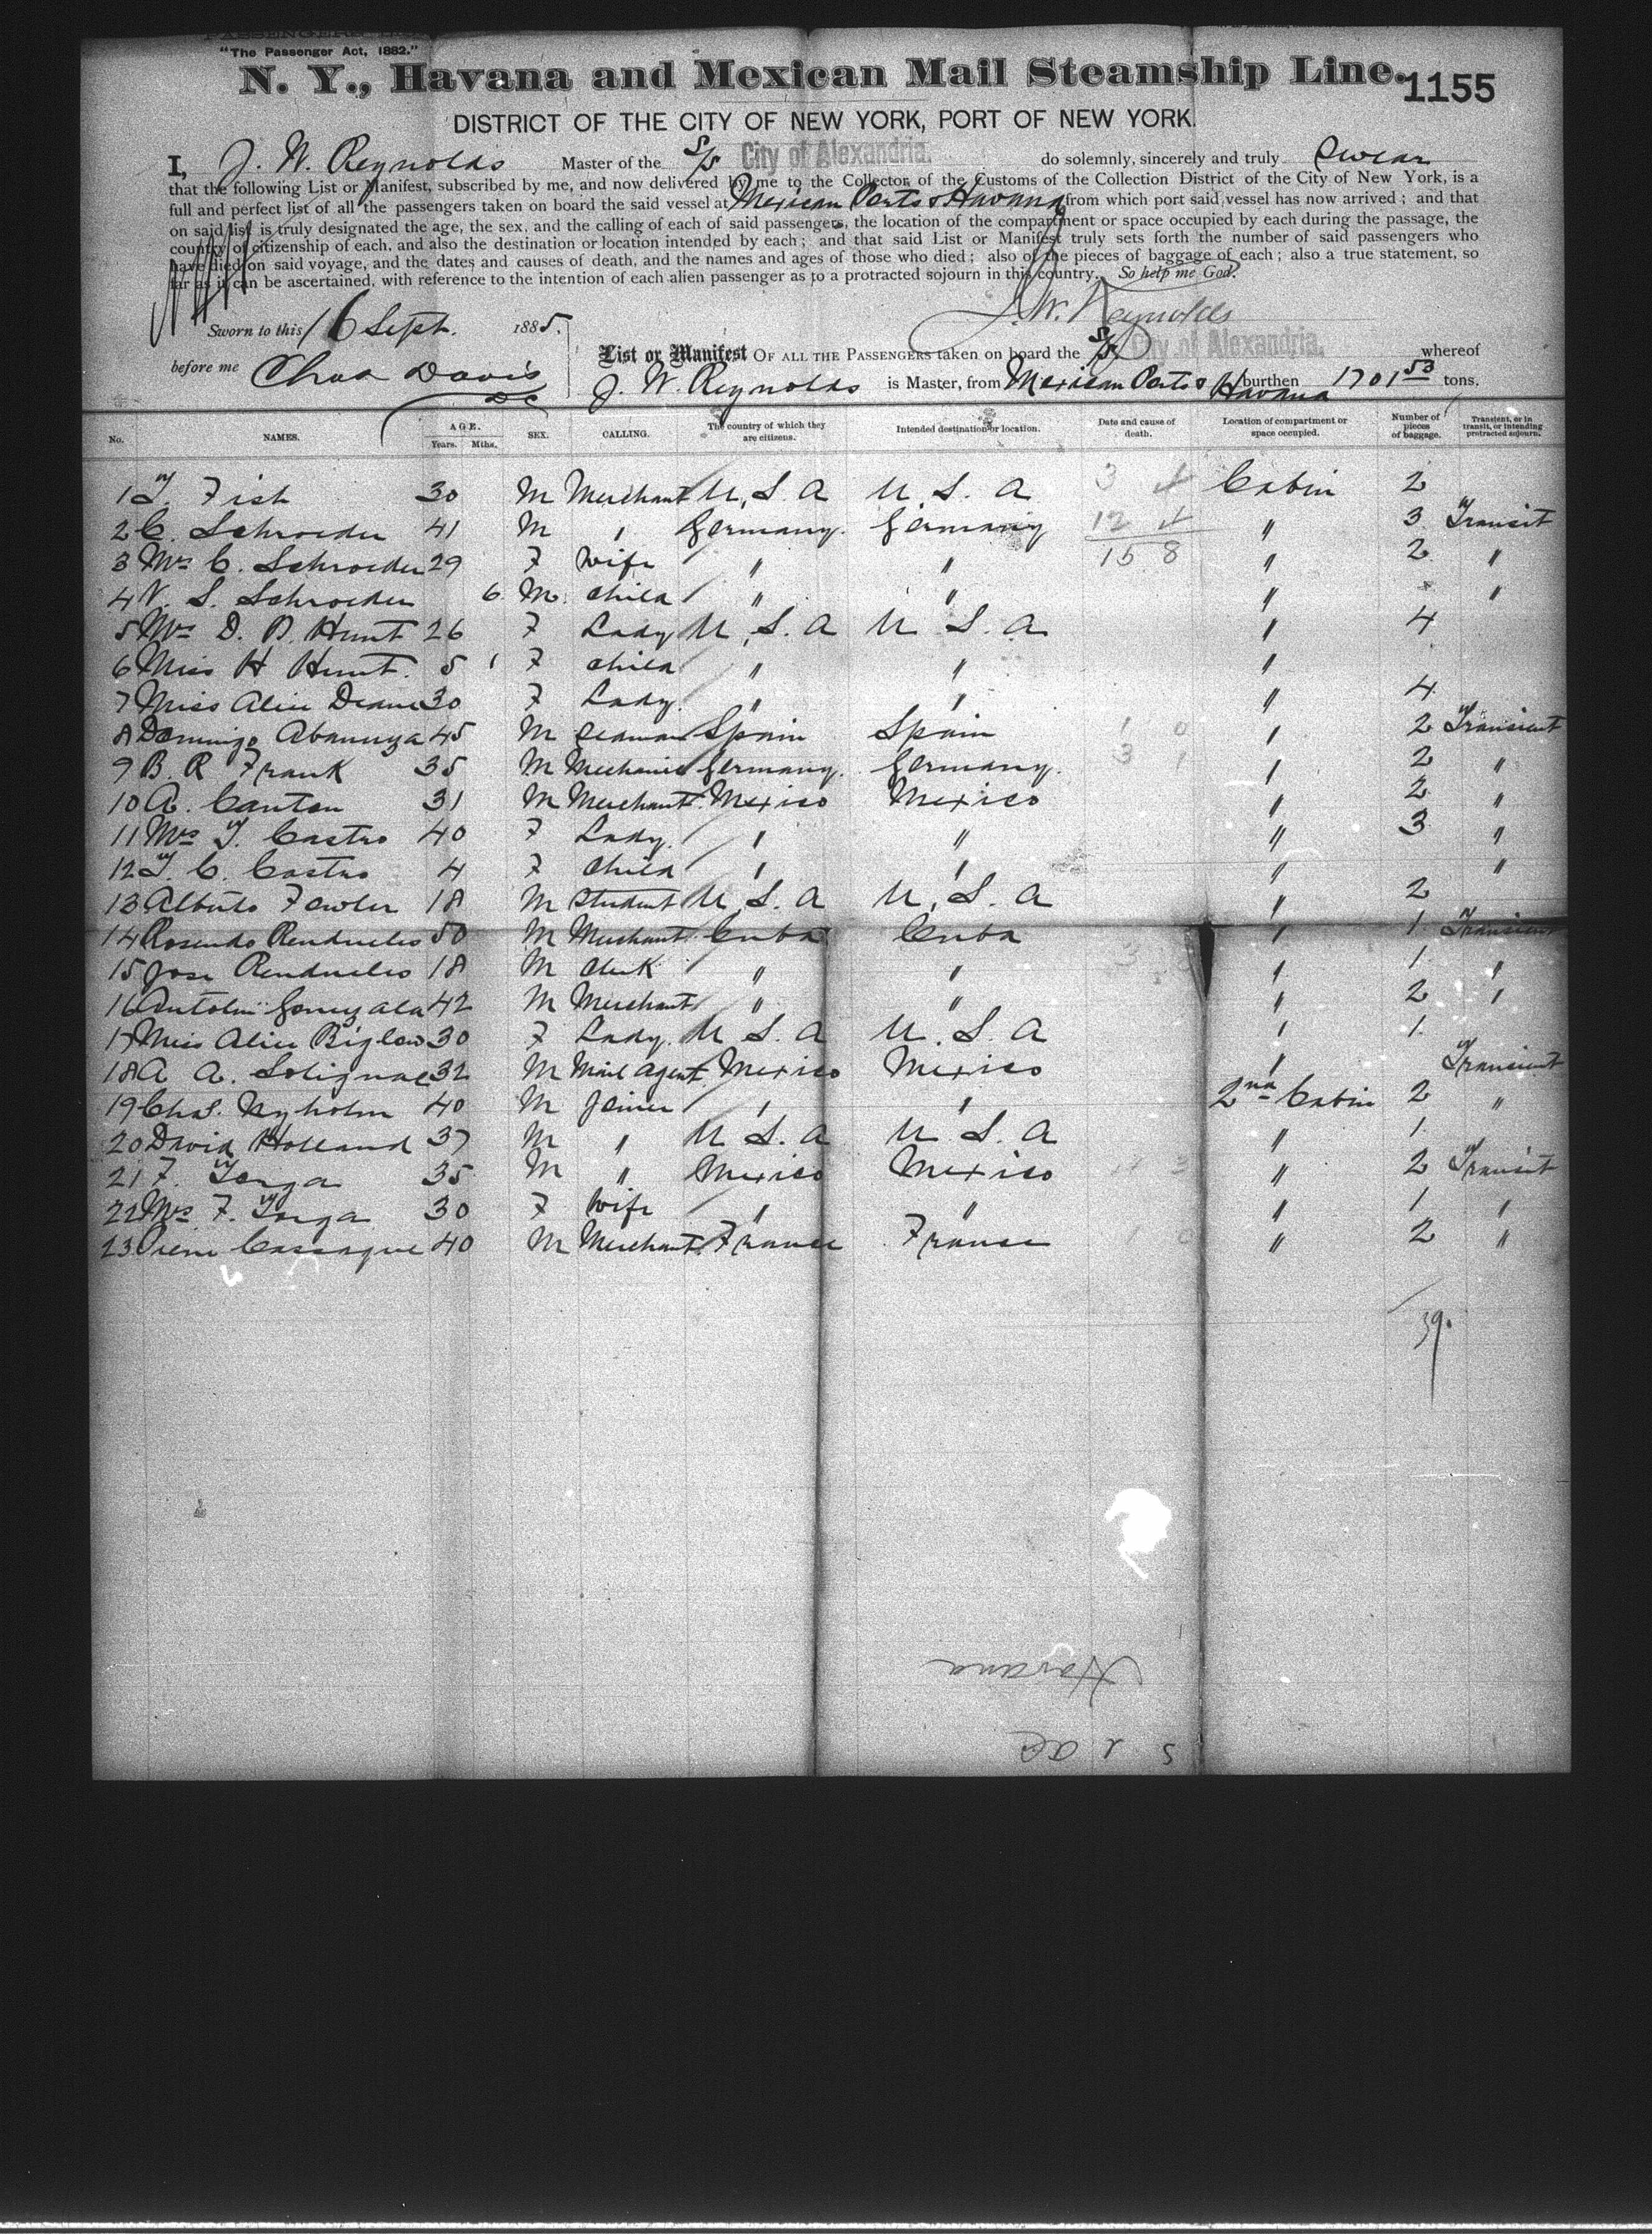 "The Passenger Act, 1882."
N. Y., Havana and Mexican Mail Steamship Line.
1155
DISTRICT OF THE CITY OF NEW YORK, PORT OF NEW YORK.
I, J. W. Reynolds Master of the S/S City of Alexandria. do solemnly, sincerely and truly Swear
that the following List or Manifest, subscribed by me, and now delivered by me to the Collector of the Customs of the Collection District of the City of New York, is a
full and perfect list of all the passengers taken on board the said vessel at Mexican Ports & Havana from which port said vessel has now arrived ; and that
on said list is truly designated the age, the sex, and the calling of each of said passengers, the location of the compartment or space occupied by each during the passage, the
country of citizenship of each, and also the destination or location intended by each ; and that said List or Manifest truly sets forth the number of said passengers who
have died on said voyage, and the dates and causes of death, and the names and ages of those who died ; also of the pieces of baggage of each ; also a true statement, so
far as it can be ascertained, with reference to the intention of each alien passenger as to a protracted sojourn in this country. So help me God.
J. W. Reynolds
Sworn to this 16 Sept. 1885.
before me Chas Davis
DC
List or Manifest OF ALL THE PASSENGERS taken on board the S/S City of Alexandria. whereof
J. W. Reynolds is Master, from Mexican Ports & Havana burthen 1701 53 tons.
No. NAMES. AGE. Years. Mths. SEX. CALLING. The country of which they are citizens. Intended destination or location. Date and cause of death. Location of compartment or space occupied. Number of pieces of baggage. Transient, or in transit, or intending protracted sojourn.
1 T. Fish 30 M Merchant U.S.A U.S.A 3 Cabin 2
2 C. Schroeder 41 M " Germany. Germany 12 " 3 Transit
3 Mrs C. Schroeder 29 F Wife " " 15 8 " 2 "
4 V. S. Schroeder 6 M. Child " " " "
5 Mrs D. B. Hunt 26 F Lady U.S.A U.S.A " 4
6 Miss H Hunt. 5 F Child " " "
7 Miss Alice Deane 30 F Lady. " " " 4
8 Domingo 45 M Seaman Spain Spain " 2 Transient
9 B. R Frank 35 M Mechanic Germany. Germany. " 2 "
10 A. Canton 31 M Merchant Mexico Mexico " 2 "
11 Mrs T. Castro 40 F Lady. " " " 3 "
12 T. C. Castro 4 F Child " " " "
13 Alberto Fowler 18 M Student U.S.A U.S.A " 2
14 Rosendo Rendueles 50 M Merchant Cuba Cuba " 1 Transient
15 Jose Rendueles 18 M Clerk " " " 1 "
16 Antolin 42 M Merchant " " " 2 "
17 Miss Alice Biglow 30 F Lady. U.S.A U.S.A " 1
18 A. A. Solignac 32 M Mail Agent Mexico Mexico " Transient
19 Chas. Nyholm 40 M Joiner " " 2nd Cabin 2 "
20 David Holland 37 M " U.S.A U.S.A " 1
21 F. Torga 35 M " Mexico Mexico " 2 Transit
22 Mrs F. Torga 30 F Wife " " " 1 "
23 Cassagne 40 M Merchant France France " 2 "
39.
Havana